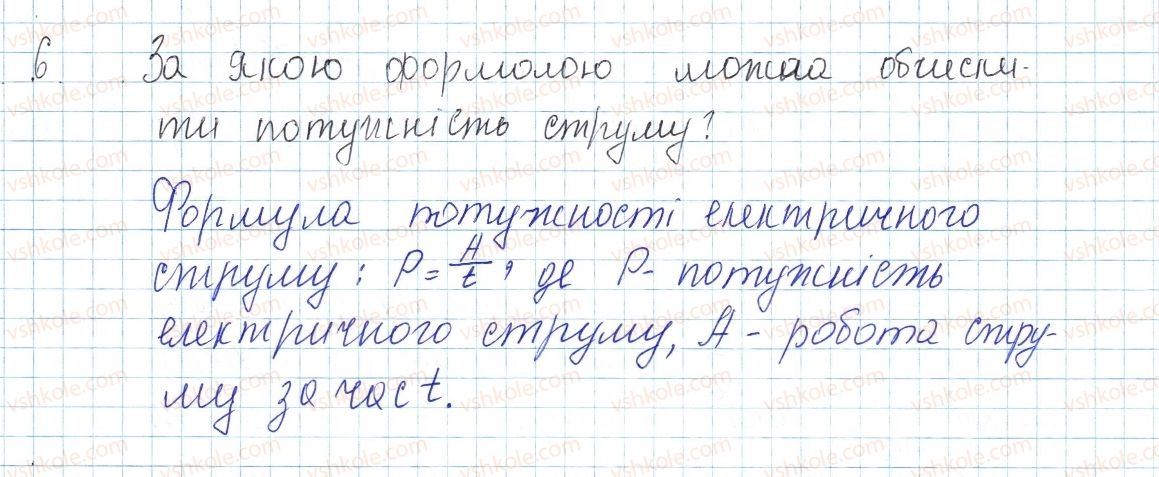 6. За якою формолою можна обчисли-
ти потужність струму?
Формула потужності електричного
струму: P = A/t, де P - потужність
електричного струму, A - робота стру-
му за час t.